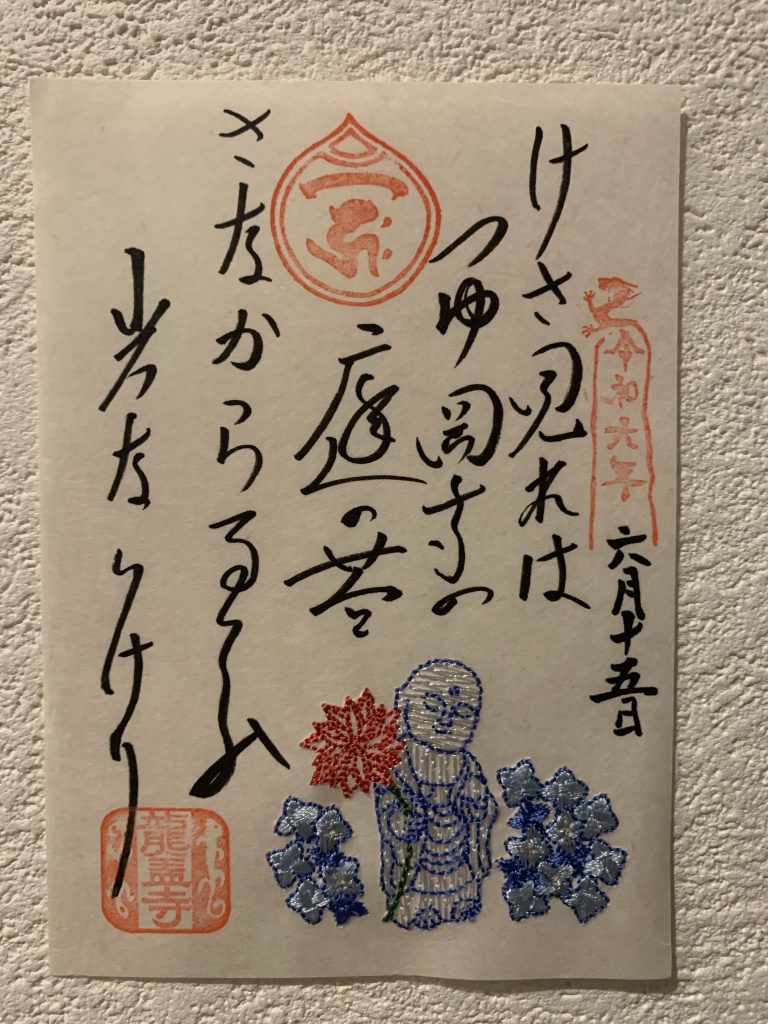 令和六年
六月十五日
けさ見れは
つゆ岡寺の
庭の苔
さなからるりの
光なりけり
龍蓋寺